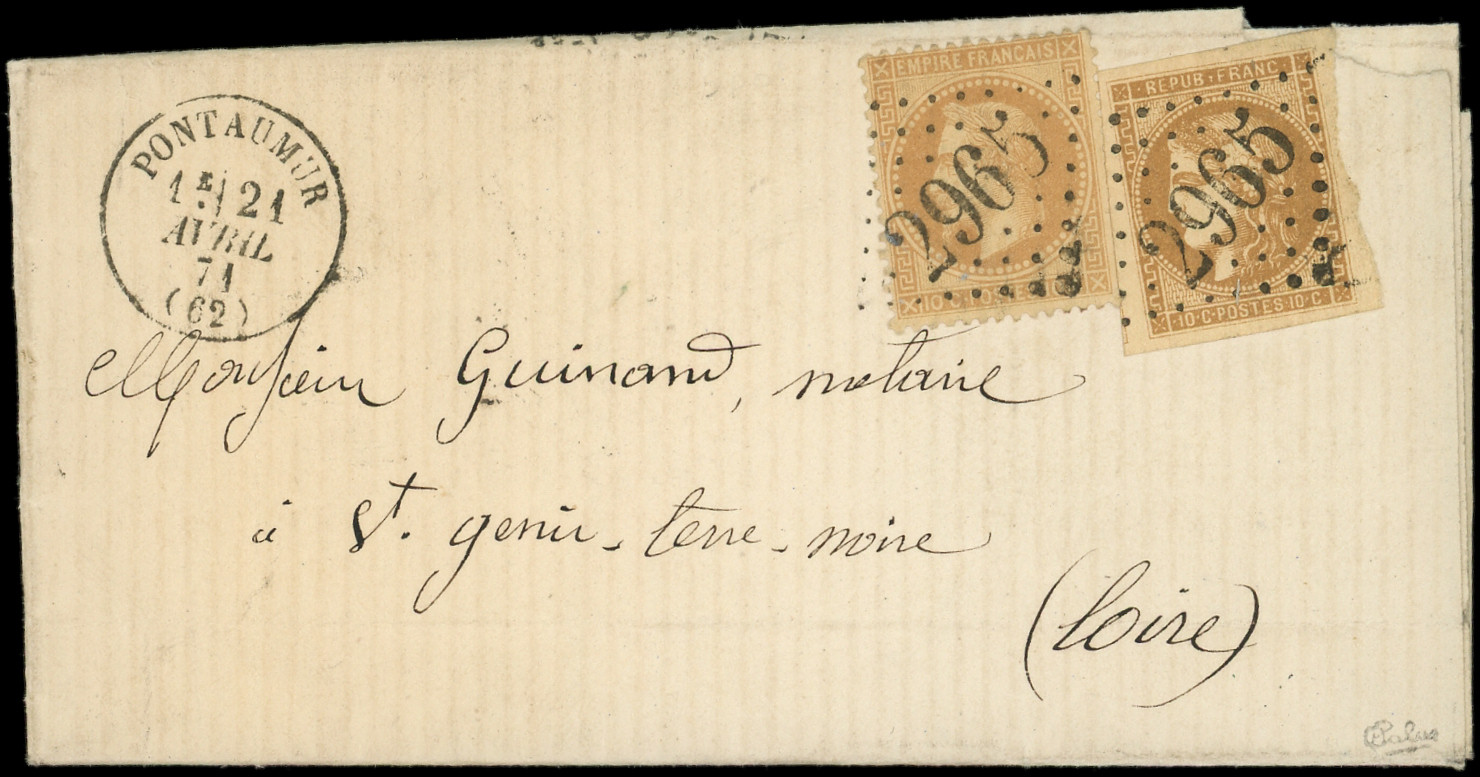 PONTAUMUR
1E 21
AVRIL
71
(62)
EMPIRE FRANÇAIS
2965
REPUB. FRANC.
2965
10·C·POSTES 10·C
Monsieur Guinand, notaire
à St. genis-terre-noire
(Loire)